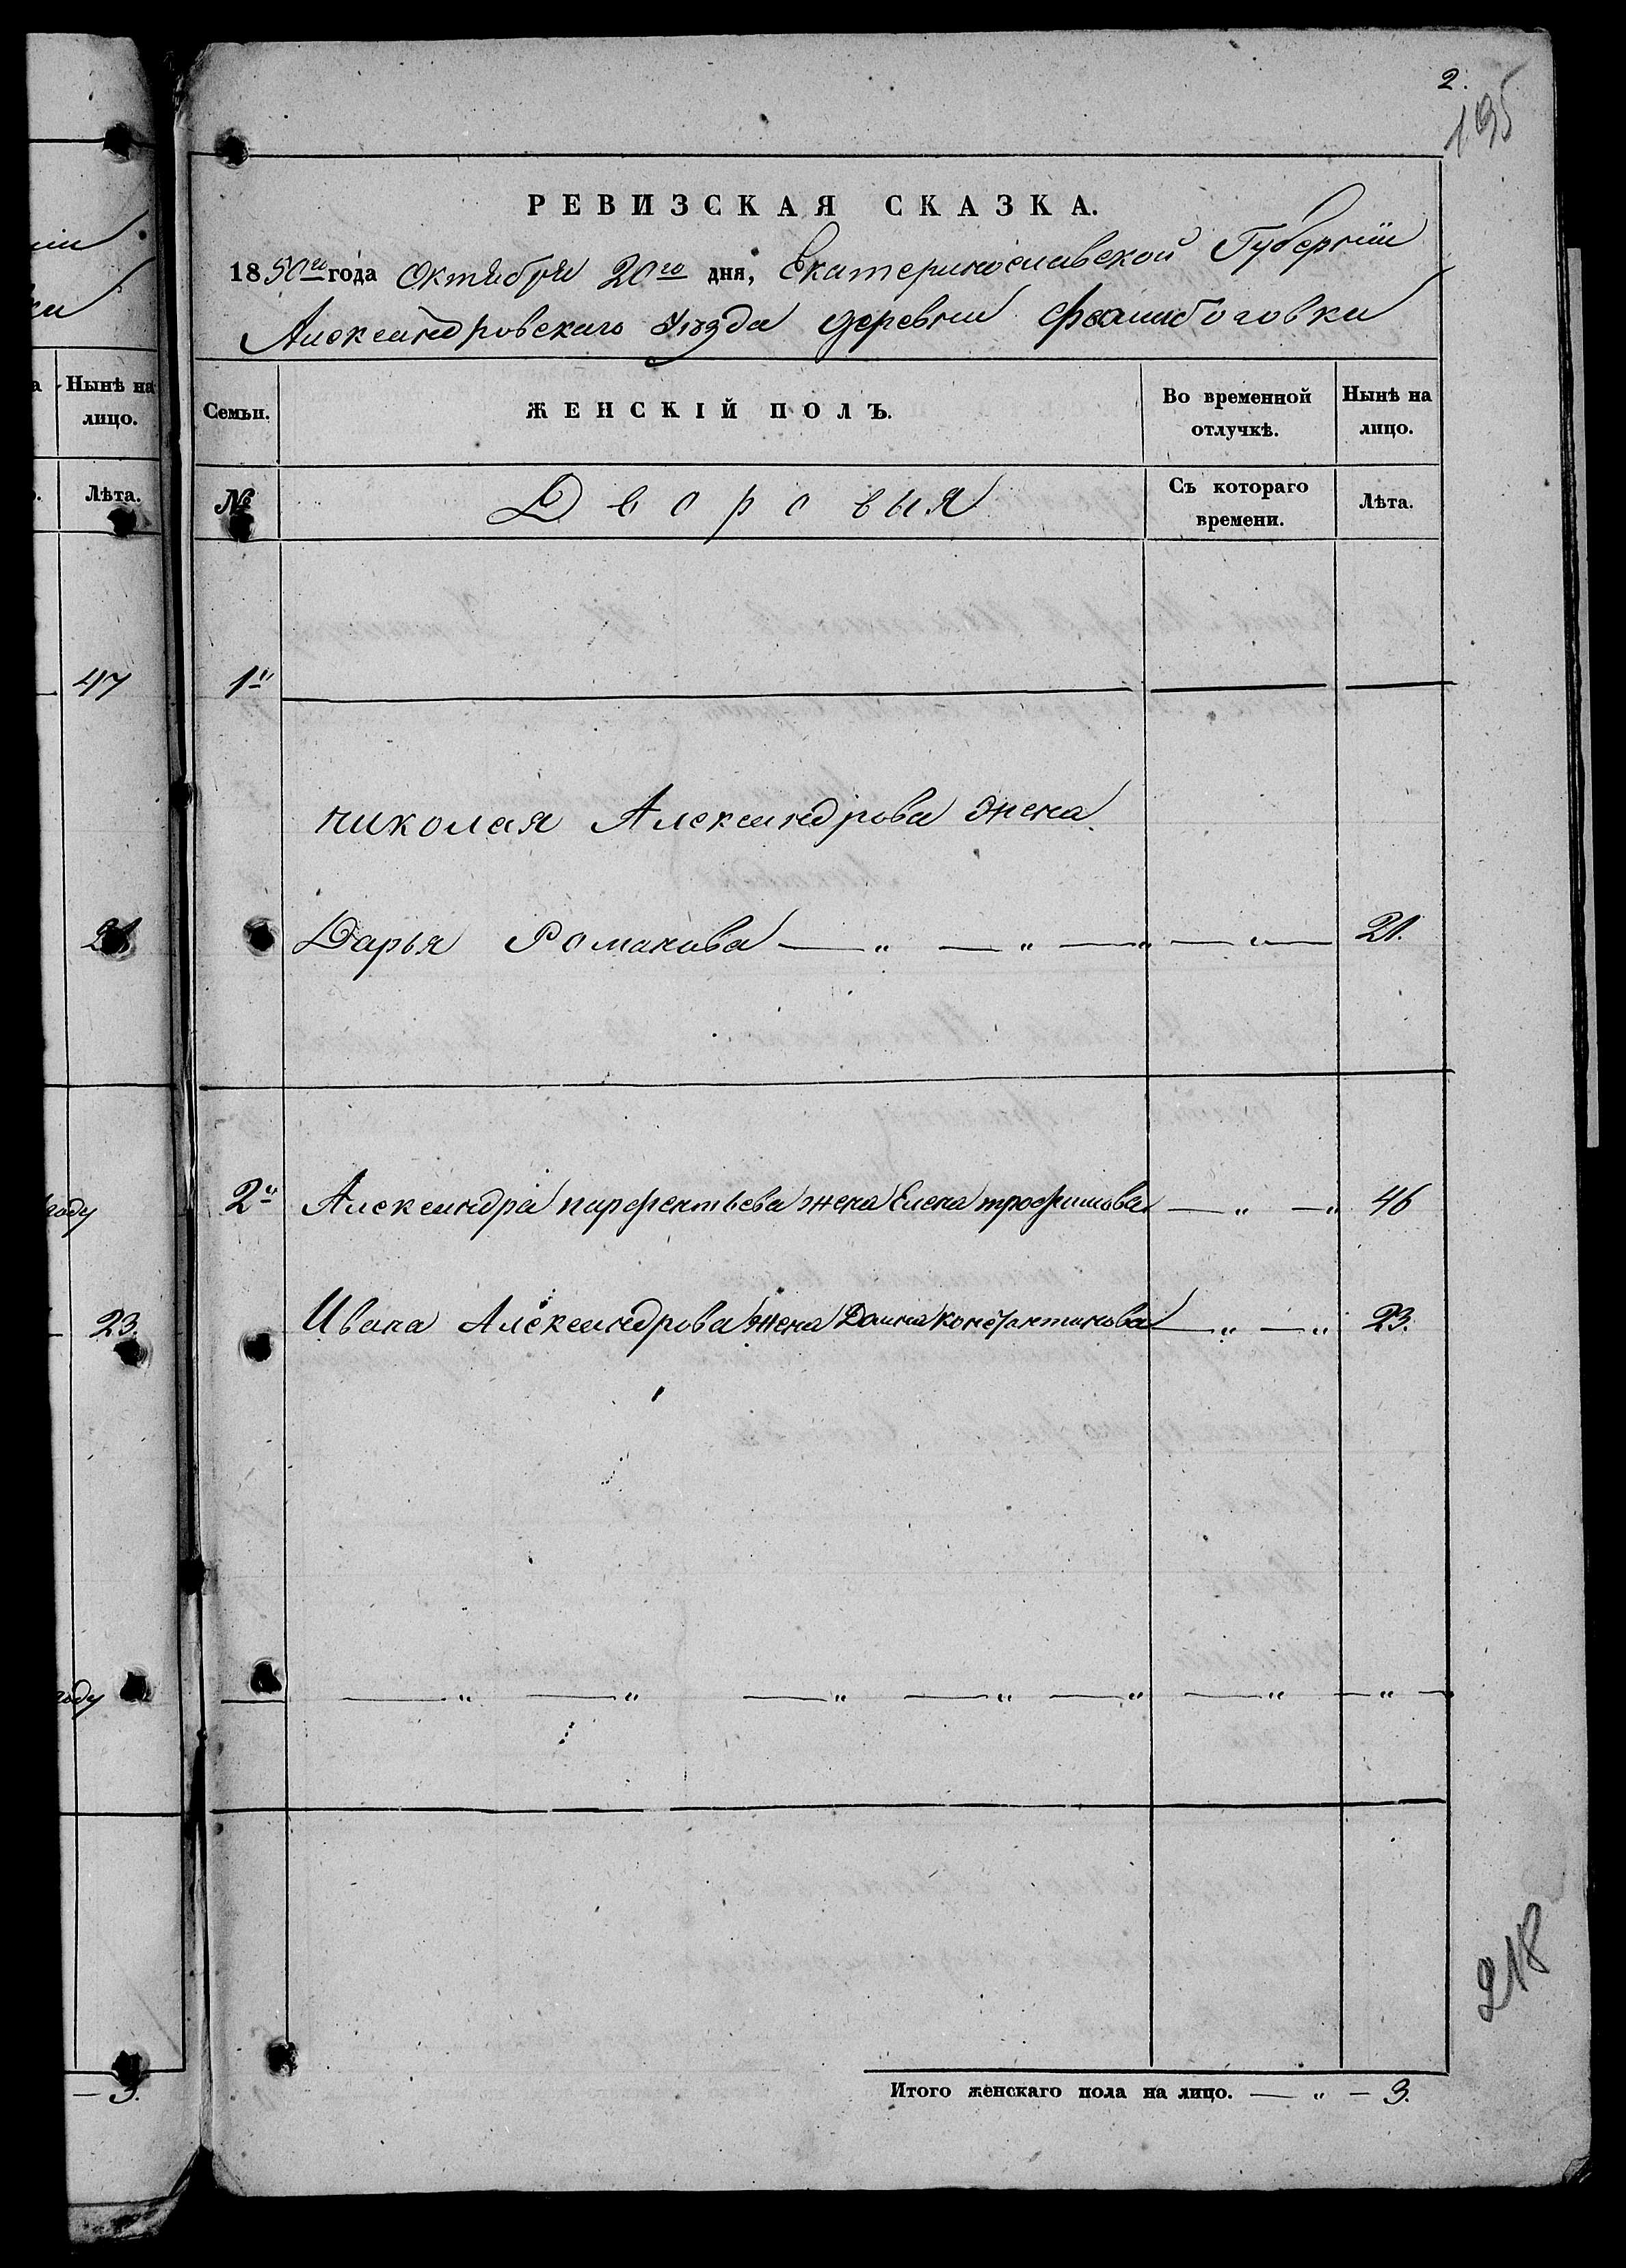 ніи
ки
Нынѣ на
лицо.
Лѣта.
47
21
году
23.
году
— 3.
2.
195
РЕВИЗСКАЯ СКАЗКА.
1850го года Октября 20го дня, Екатеринославской Губерніи
Александровскаго уѣзда деревни
Семьи.
ЖЕНСКІЙ ПОЛЪ.
Во временной
отлучкѣ.
Нынѣ на
лицо.
№
Дворовыя
Съ котораго
времени.
Лѣта.
1й
николая Александрова жена
Дарья Романова — „ — „ — „ — „ — 21.
2й Александра парфентьева жена Елена трофимова — „ — „ 46
Ивана Александрова жена Домна константинова — „ — „ 23.
— — „ — „ — „ — „ — „ — „ — „ —
Итого женскаго пола на лицо. — „ — 3.
218